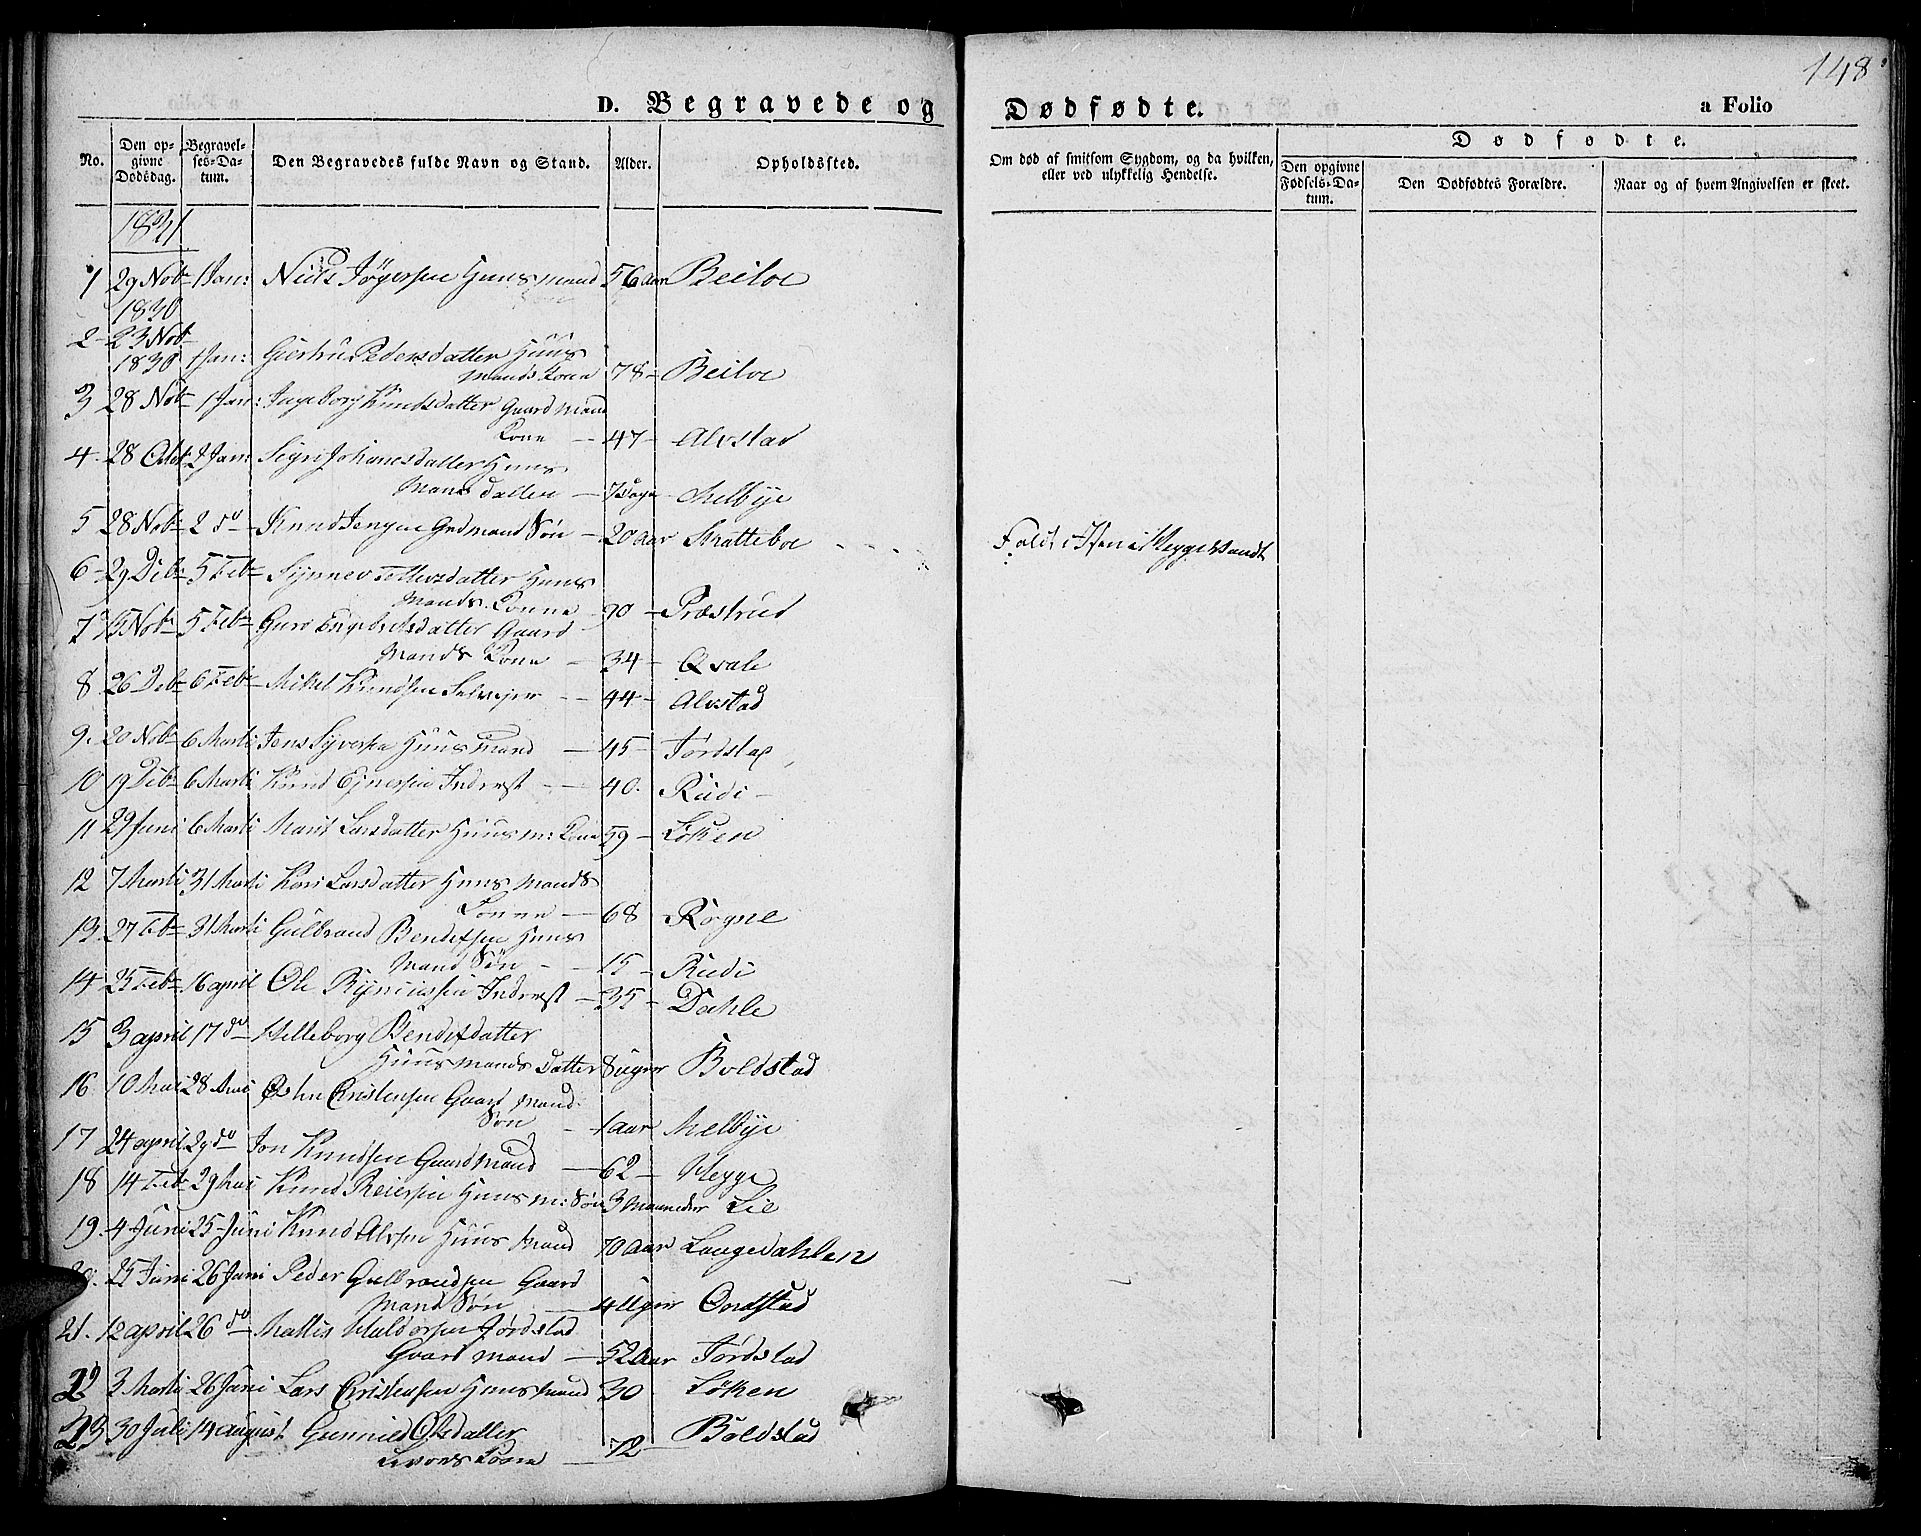 148
D. Begravede og Dødfødte. a Folio
No. Den opgivne Dødsdag. Begravelses-Datum. Den Begravedes fulde Navn og Stand. Alder. Opholdssted. Om død af smitsom Sygdom, og da hvilken, eller ved ulykkelig Hendelse. Dødfødte. Den opgivne Fødsels-Datum. Den Dødfødtes Forældre. Naar og af hvem Angivelsen er skeet.
1831
1 29 Nob 1 Jan: Niels Huusmand 56 aar Beitoe
1830
2 23 Nob
1830 1 Jan: Giertru Pedersdatter Huus
Mands Kone 78 - Beitoe
3 28 Nob 1 Jan: Ingeborg Knudsdatter Gaardmand
Kone - 47 - Alvstad
4. 28 Octob 2 Jan: Sigri Johanesdatter Huus
Mans datter - 7 Dage - Melbye
5 28 Nob 2 do Knud Grdmand Søn - 20 aar Skatteboe Faldt i Isen i Heggevandt
6 29 Deb 5 Feb Synnev datter Huus
Mands Konne 90 - Præstrud
7 15 Nob 5 Feb Guro Engebretsdatter Gaard
Mands Kone - 34 - Qvale
8 26 Deb 6 Feb Mikel Knudsen Selvejer - 44 - Alvstad
9. 20 Nob 6 Marti Jens Syversen Huusmand - 45 - Fördstad
10 19 Deb 6 Marti Knud Inderst - 40. Rudi -
11 29 Juni 6 Marti Marit Larsdatter Huusm: Kone 59 - Löken
12 7 Marti 31 Marti Kari Larsdatter Huus Mands
Konne - 68 Rogne
13. 27 Feb 31 Marti Gulbrand Bendiksen Huus
Mand Søn - 15 - Rudi
14 25 Feb 16 april Ole Inderst - 35 - Dahle
15 3 april 17 do Helleborg Bendixdatter
Huusmands Datter 8 uger Boldstad
16. 10 Mai 28 Mai Cristensen Gaard Mand:
Søn - 1 aar Melbye
17 24 april 29 do Jon Knudsen Gaardmand - 62 - Hegge
18 14 Feb 29 Mai Knud Reiersen Huusm: Søn 3 maaneder Lie
19. 4 Juni 25 Juni Knud Alvsen Huus Mand 70 aar Langedahlen
20. 25 Juni 26 Juni Peder Gulbrandsen Gaard
Mand Søn - 4 Uger Ondstad
21. 12 april 26 do Mattis Haldorsen Fördstad
Gaard mand - 52 aar Fördstad
22 3 Marti 26 Juni Lars Cristensen Huusmand 30 - Löken
23 30 Juli 14 august Gunnild Olsdatter Boldstad
Kone - 72 -